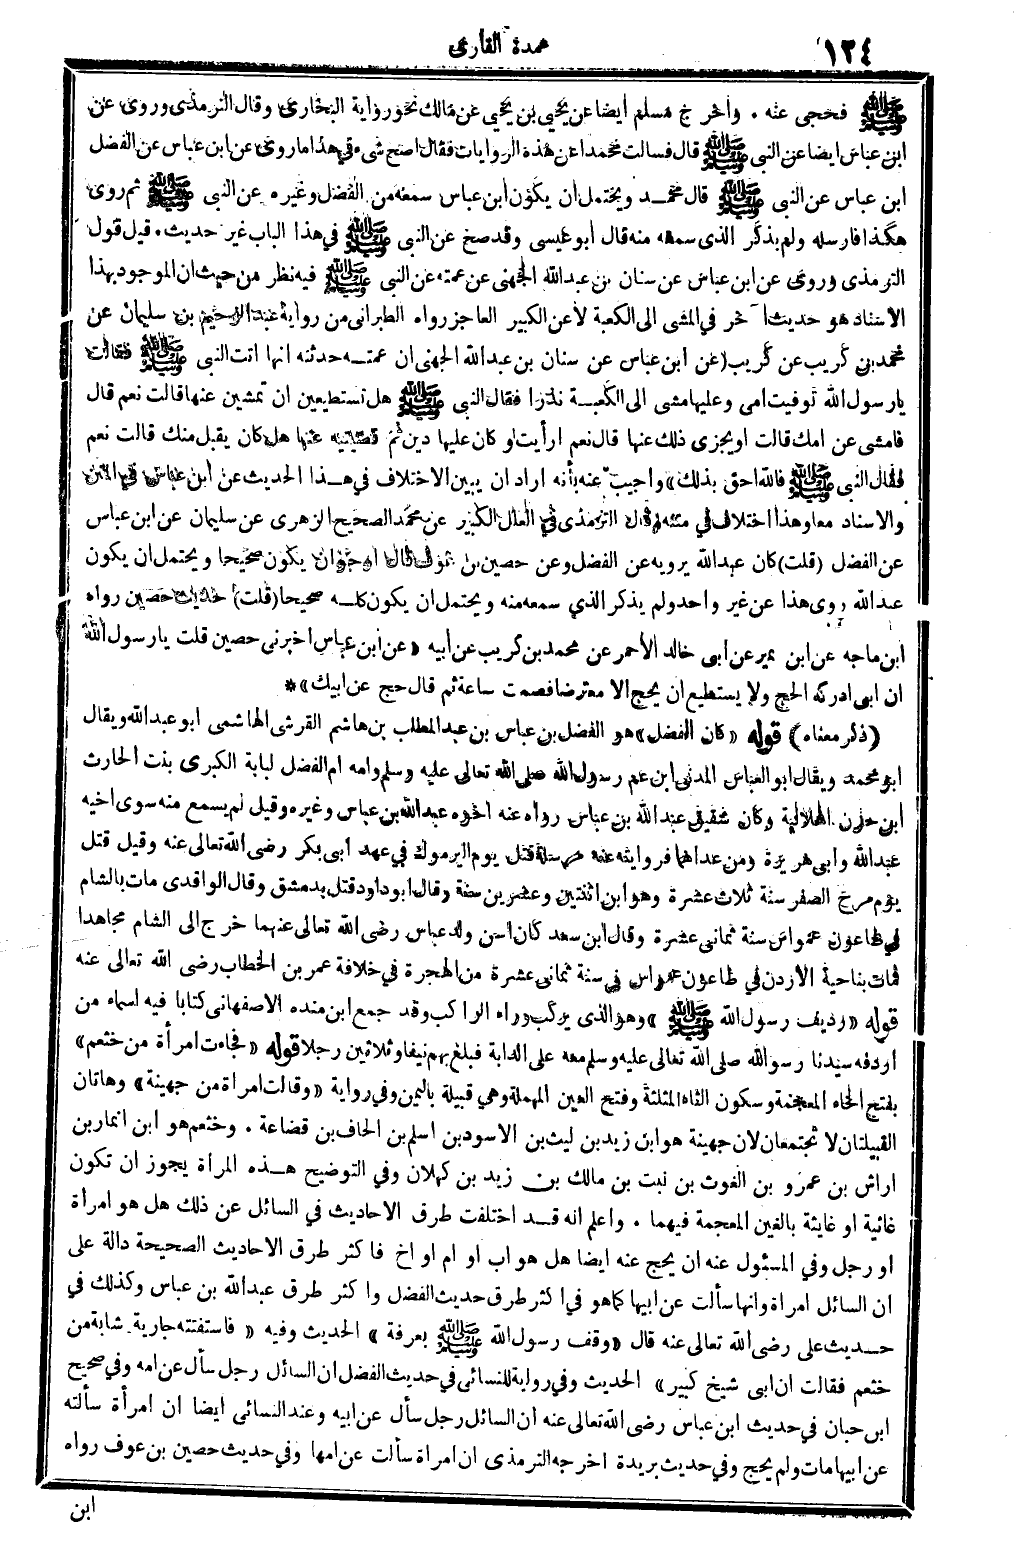 ١٢٤
عمدة القارى
ﷺ فحجى عنه . وأخرج مسلم أيضا عن يحيى بن يحيى عن مالك نحو رواية البخارى وقال الترمذى وروى عن
ابن عباس ايضا عن النبى ﷺ قال فسالت محمدا عن هذه الروايات فقال اصح شىء فى هذا ما روى عن ابن عباس عن الفضل
ابن عباس عن النبى ﷺ قال محمد ويحتمل أن يكون ابن عباس سمعه من الفضل وغيره عن النبى ﷺ ثم روى
هكذا فارسله ولم يذكر الذى سمعه منه قال أبو عيسى وقد صح عن النبى ﷺ فى هذا الباب غير حديث . قيل قول
الترمذى وروى عن ابن عباس عن سنان بن عبد الله الجهنى عن عمته عن النبى ﷺ فيه نظر من حيث ان الموجود بهذا
الاسناد هو حديث آخر فى المشى الى الكعبة لا عن الكبير العاجز رواه الطبرانى من رواية عبد الرحيم بن سليمان عن
محمد بن كريب عن كريب (عن ابن عباس عن سنان بن عبد الله الجهنى ان عمته حدثته انها اتت النبى ﷺ فقالت
يا رسول الله توفيت امى وعليها مشى الى الكعبة نذرا فقال النبى ﷺ هل تستطيعين ان تمشين عنها قالت نعم قال
فامشى عن امك قالت او يجزى ذلك عنها قال نعم ارأيت لو كان عليها دين ثم قضيتيه عنها هل كان يقبل منك قالت نعم
فقال النبى ﷺ فالله احق بذلك» واجيب عنه بأنه اراد ان يبين الاختلاف فى هذا الحديث عن ابن عباس فى المتن
والاسناد معا وهذا اختلاف فى متنه وقال الترمذى فى العلل الكبير عن محمد الصحيح الزهرى عن سليمان عن ابن عباس
عن الفضل (قلت) كان عبد الله يرويه عن الفضل وعن حصين بن عوف قال ارجو ان يكون صحيحا ويحتمل ان يكون
عبد الله روى هذا عن غير واحد ولم يذكر الذي سمعه منه ويحتمل ان يكون كله صحيحا (قلت) حديث حصين رواه
ابن ماجه عن ابن نمير عن أبى خالد الأحمر عن محمد بن كريب عن أبيه «عن ابن عباس اخبرنى حصين قلت يا رسول الله
ان ابى ادركه الحج ولا يستطيع ان يحج الا معترضا فصمت ساعة ثم قال حج عن ابيك» *
(ذكر معناه) قوله «كان الفضل» هو الفضل بن عباس بن عبد المطلب بن هاشم القرشى الهاشمى ابو عبد الله ويقال
ابو محمد ويقال ابو العباس المدنى ابن عم رسول الله صلى الله تعالى عليه وسلم وامه ام الفضل لبابة الكبرى بنت الحارث
ابن حزن الهلالية وكان شقيق عبد الله بن عباس رواه عنه اخوه عبد الله بن عباس وغيره وقيل لم يسمع منه سوى اخيه
عبد الله وأبى هريرة ومن عداهما فروايته عنه مرسلة قتل يوم اليرموك فى عهد أبى بكر رضى الله تعالى عنه وقيل قتل
يوم مرج الصفر سنة ثلاث عشرة وهو ابن اثنتين وعشرين سنة وقال ابو داود قتل بدمشق وقال الواقدى مات بالشام
فى طاعون عمواس سنة ثمانى عشرة وقال ابن سعد كان اسن ولد عباس رضى الله تعالى عنهما خرج الى الشام مجاهدا
فمات بناحية الأردن فى طاعون عمواس فى سنة ثمانى عشرة من الهجرة فى خلافة عمر بن الخطاب رضى الله تعالى عنه
قوله «رديف رسول الله ﷺ» وهو الذى يركب وراء الراكب وقد جمع ابن منده الاصفهانى كتابا فيه اسماء من
اردفه سيدنا رسول الله صلى الله تعالى عليه وسلم معه على الدابة فبلغ بهم نيفا وثلاثين رجلا قوله «فجاءت امرأة من خثعم»
بفتح الخاء المعجمة وسكون الثاء المثلثة وفتح العين المهملة وهى قبيلة باليمن وفى رواية «وقالت امرأة من جهينة» وهاتان
القبيلتان لا تجتمعان لان جهينة هو ابن زيد بن ليث بن الاسود بن اسلم بن الحاف بن قضاعة . وخثعم هو ابن انمار بن
اراش بن عمرو بن الغوث بن نبت بن مالك بن زيد بن كهلان وفى التوضيح هذه المرأة يجوز ان تكون
غائية او غايثة بالغين المعجمة فيهما . واعلم انه قد اختلفت طرق الاحاديث فى السائل عن ذلك هل هو امرأة
او رجل وفى المسئول عنه ان يحج عنه ايضا هل هو اب او ام او اخ فاكثر طرق الاحاديث الصحيحة دالة على
ان السائل امراة وانها سألت عن ابيها كما هو فى اكثر طرق حديث الفضل واكثر طرق عبد الله بن عباس وكذلك فى
حديث على رضى الله تعالى عنه قال «وقف رسول الله ﷺ بعرفة» الحديث وفيه «فاستفتته جارية شابة من
خثعم فقالت ان ابى شيخ كبير» الحديث وفى رواية للنسائى فى حديث الفضل ان السائل رجل سأل عن امه وفى صحيح
ابن حبان فى حديث ابن عباس رضى الله تعالى عنه ان السائل رجل سأل عن ابيه وعند النسائى ايضا ان امرأة سألته
عن ابيها مات ولم يحج وفى حديث بريدة اخرجه الترمذى ان امراة سألت عن امها وفى حديث حصين بن عوف رواه
ابن